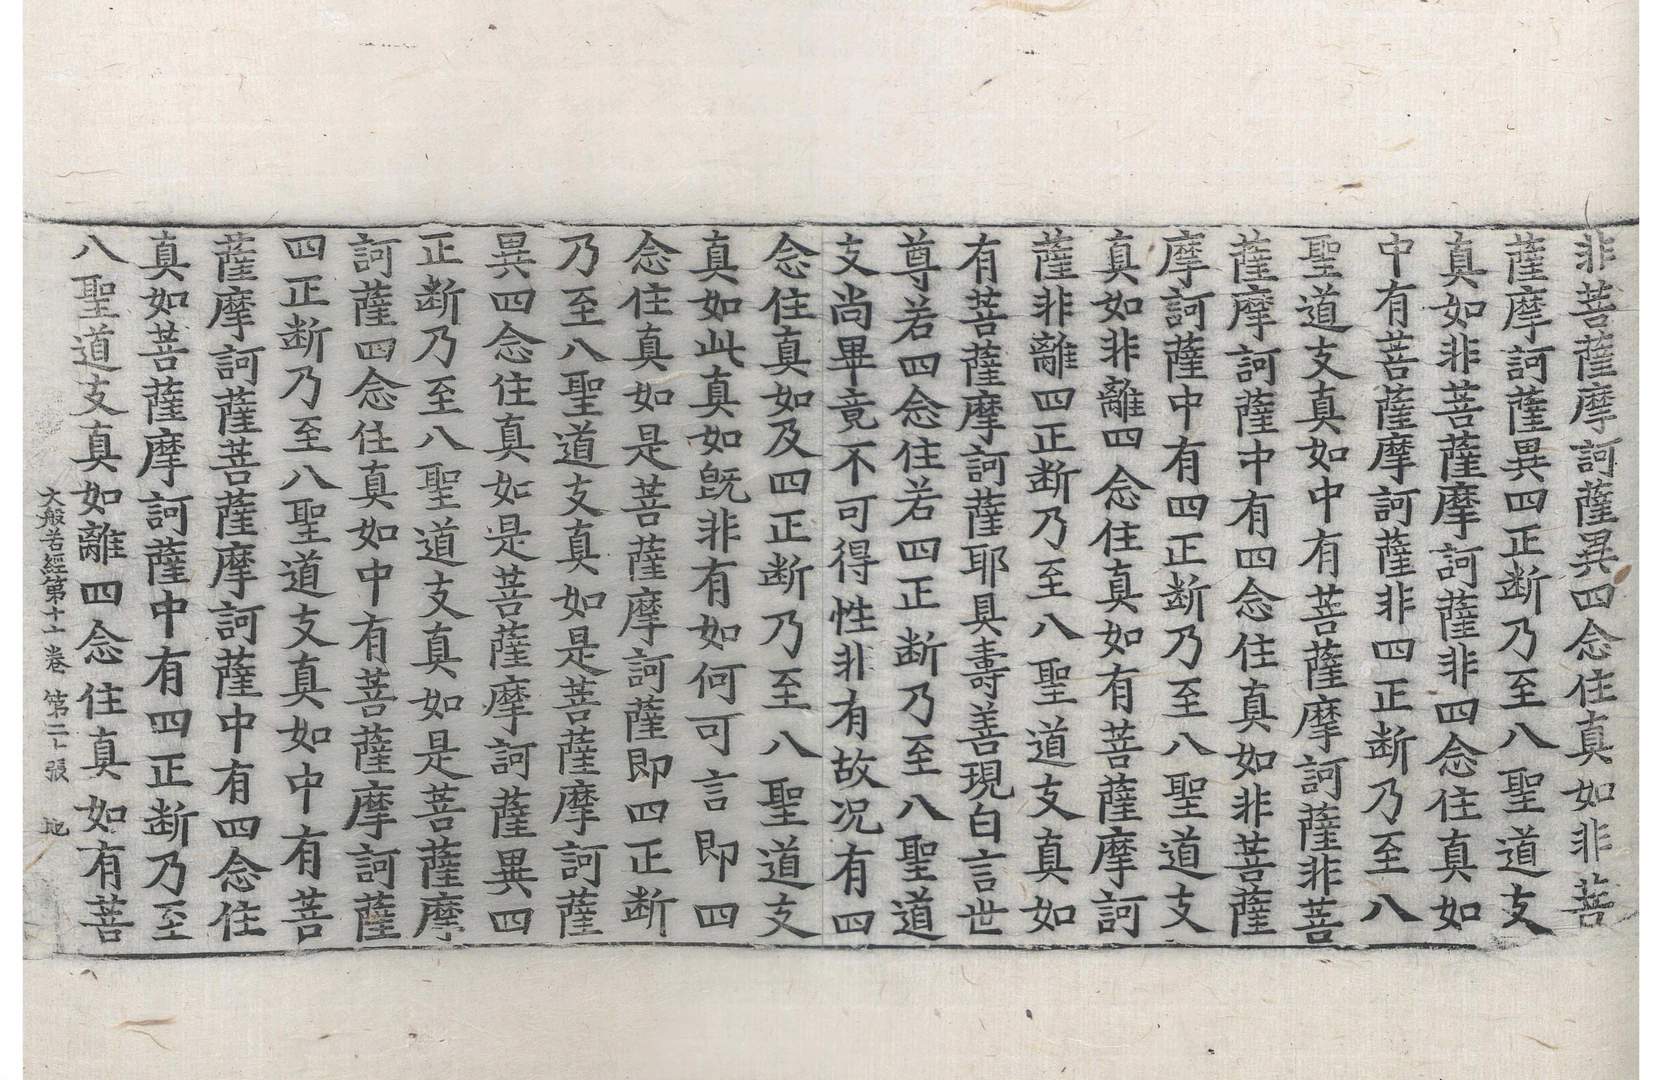 非菩薩摩訶薩異四念住真如非菩
薩摩訶薩異四正断乃至八聖道支
真如非菩薩摩訶薩非四念住真如
中有菩薩摩訶薩非四正断乃至八
聖道支真如中有菩薩摩訶薩非菩
薩摩訶薩中有四念住真如非菩薩
摩訶薩中有四正断乃至八聖道支
真如非離四念住真如有菩薩摩訶
薩非離四正断乃至八聖道支真如
有菩薩摩訶薩耶具壽善現白言世
尊若四念住若四正断乃至八聖道
支尚畢竟不可得性非有故况有四
念住真如及四正断乃至八聖道支
真如此真如旣非有如何可言即四
念住真如是菩薩摩訶薩即四正断
乃至八聖道支真如是菩薩摩訶薩
異四念住真如是菩薩摩訶薩異四
正断乃至八聖道支真如是菩薩摩
訶薩四念住真如中有菩薩摩訶薩
四正断乃至八聖道支真如中有菩
薩摩訶薩菩薩摩訶薩中有四念住
真如菩薩摩訶薩中有四正断乃至
八聖道支真如離四念住真如有菩
大般若經第十一卷 第二十張 地